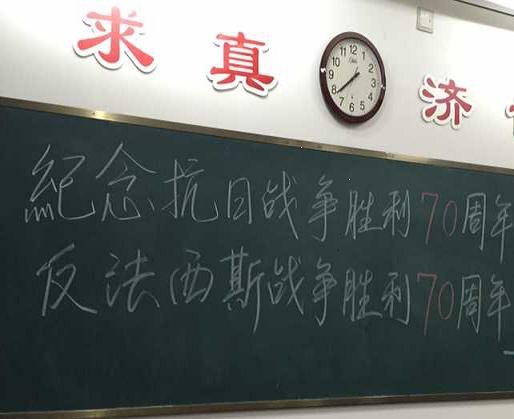 求真 济
12 1 2 3 4 5 6 7 8 9 10 11
紀念抗日战争胜利70周年
反法西斯战争胜利70周年